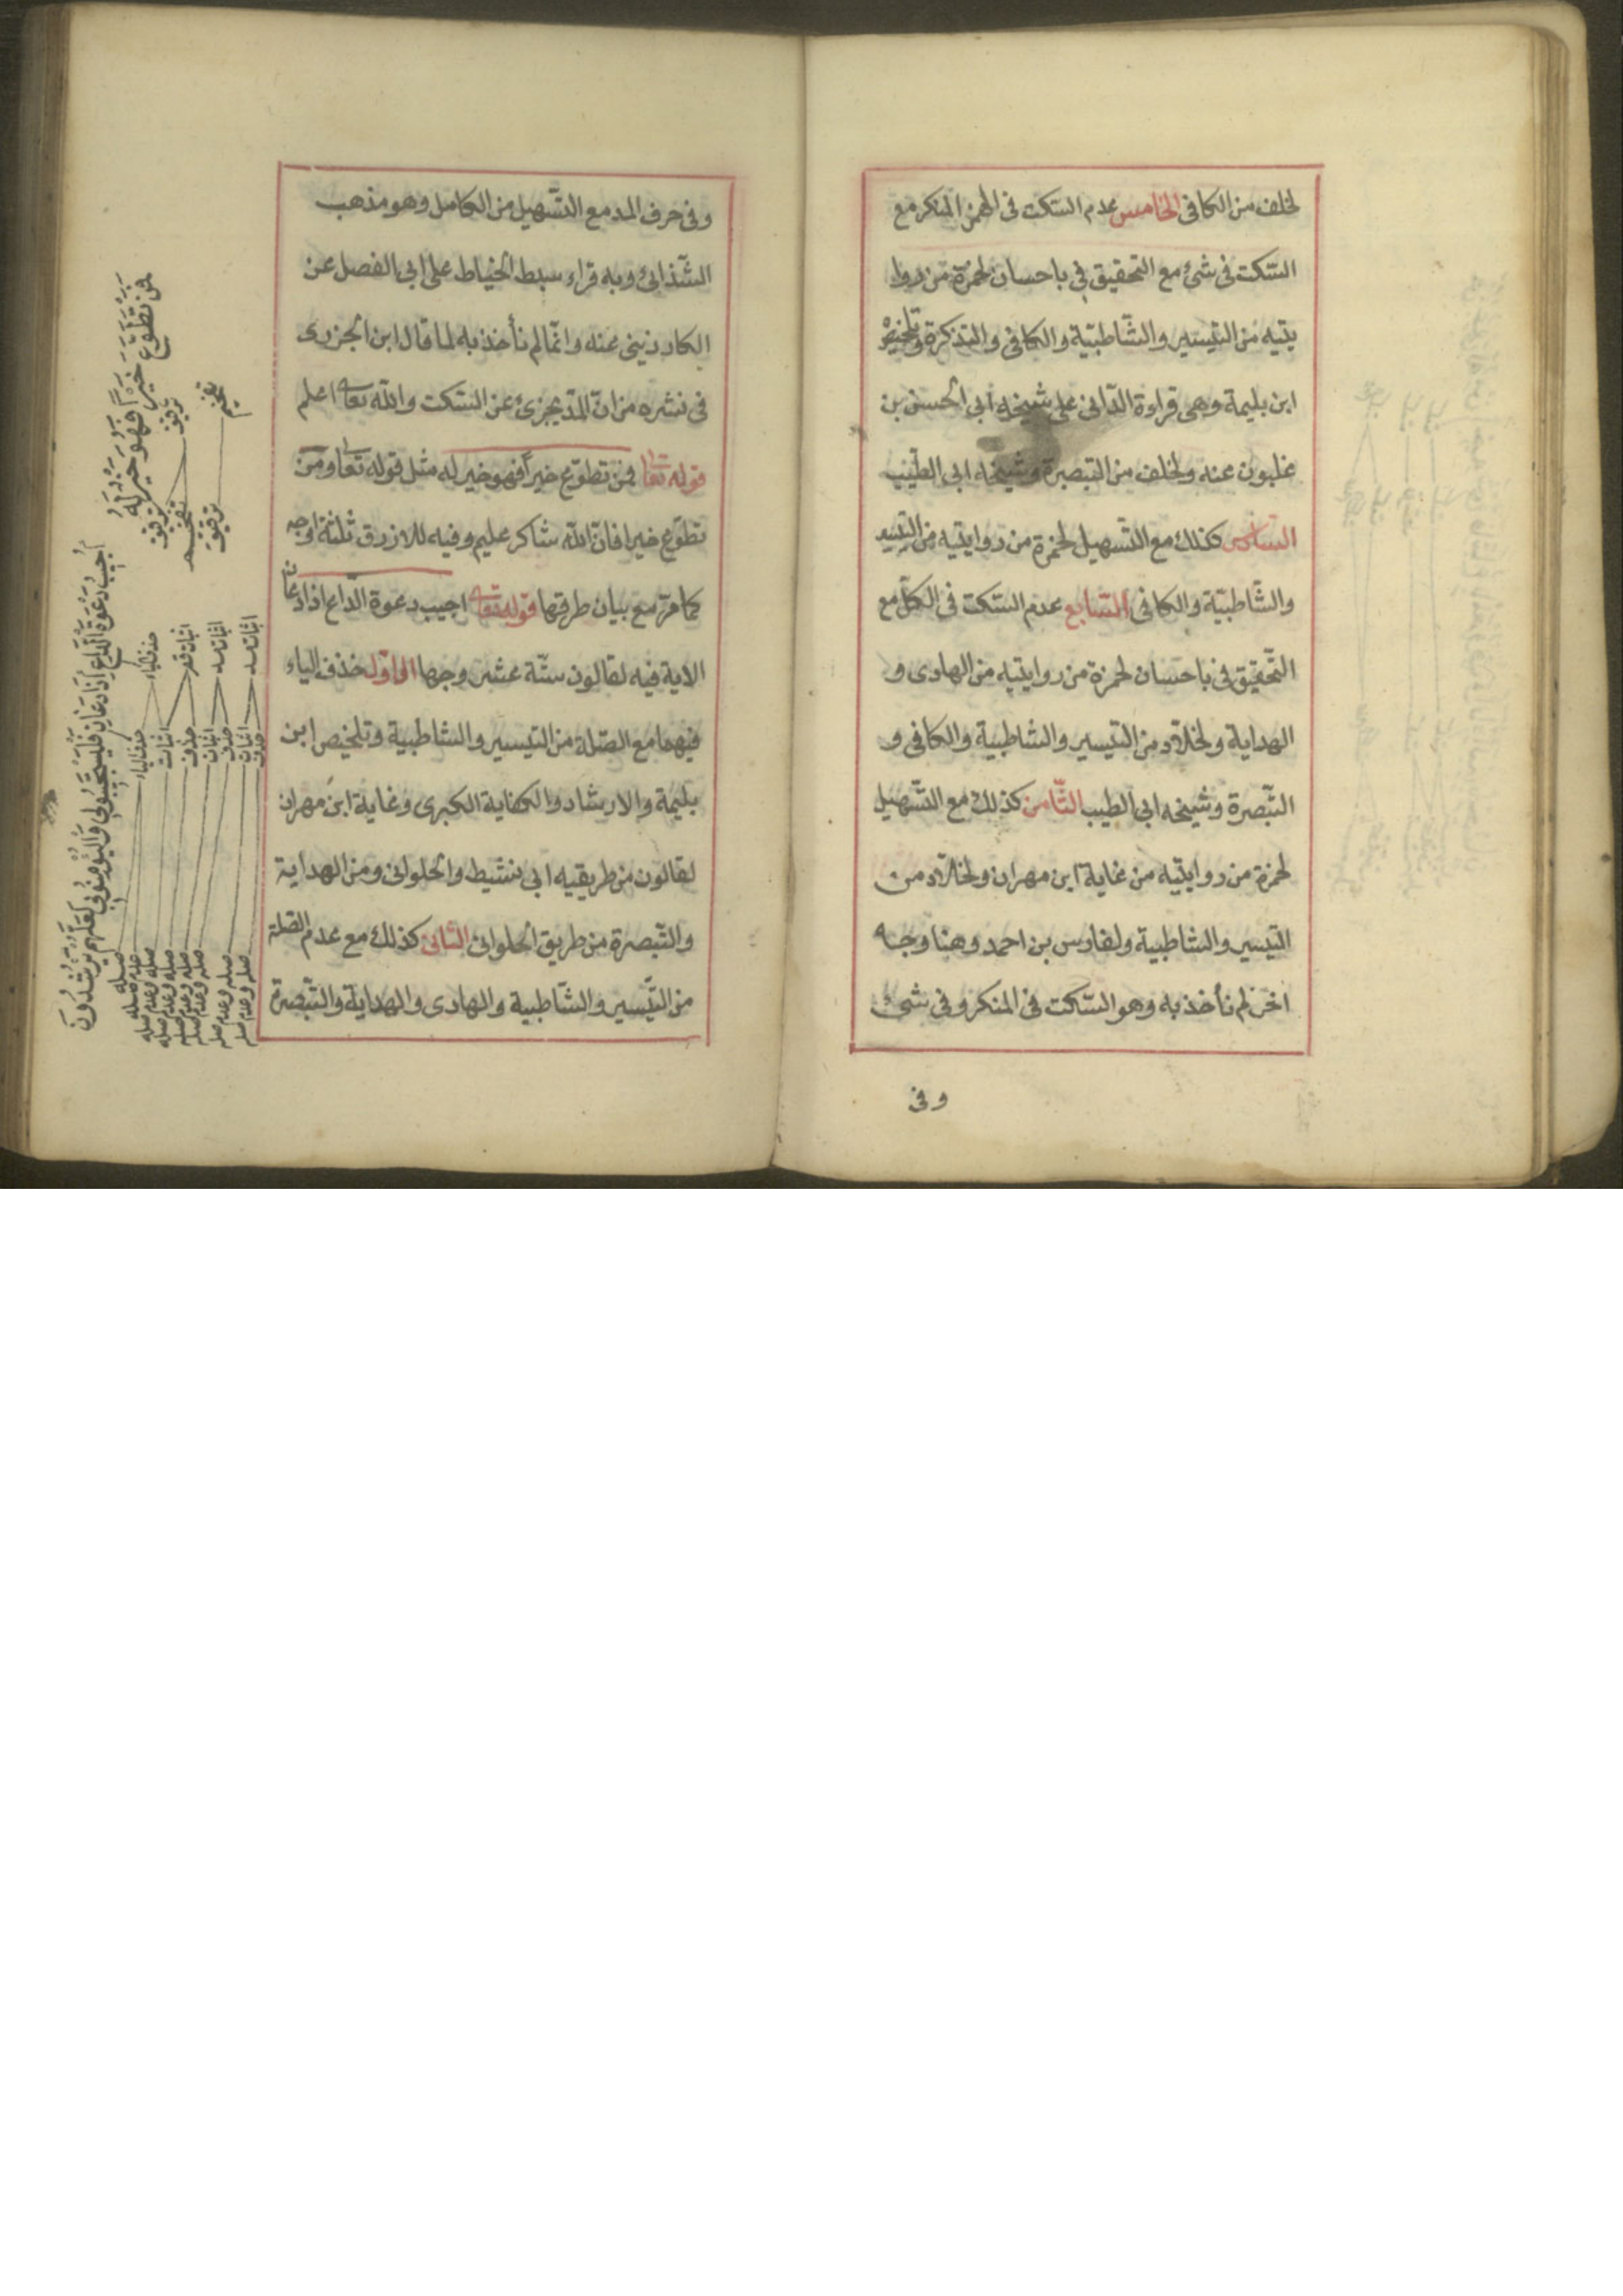 لخلف من الكافى الخامس عدم السّكت فى الهمز المنكر مع
السّكت فى شئ مع التحقيق فى باحسان لحمزة من روا
يتيه من التيسير والشّاطبيّة والكافى والتذكرة وتلخيص
ابن بليمة وهى قراءة الدّانى على شيخه ابى الحسن بن
غلبون عنه ولخلف من التبصرة وشيخه ابى الطيّب
السادس كذلك مع التّسهيل لحمزة من روايتيه من التيسير
والشّاطبيّة والكافى السّابع عدم السّكت فى الكلّ مع
التّحقيق فى باحسان لحمزة من روايتيه من الهادى و
الهداية ولخلاّد من التيسير والشاطبية والكافى و
التّبصرة وشيخه ابى الطيب الثّامن كذلك مع التّسهيل
لحمزة من روايتيه من غاية ابن مهران ولخلاّد من
التيسير والشاطبية ولفارس بن احمد وهنا وجه
اخر لم نأخذ به وهو السّكت فى المنكر وفى شئ
وفى
وفى حرف المد مع التّسهيل من الكامل وهو مذهب
الشّذائى وبه قراء سبط الخياط على ابى الفضل عن
الكارزينى عنه وانّما لم نأخذ به لما قال ابن الجزرى
فى نشره من انّ المدّ يجزئ عن السّكت والله تعا اعلم
قوله تعا فمن تطوّع خيراً فهو خير له مثل قوله تعا ومن
تطوّع خيرا فانّ الله شاكر عليم وفيه للازرق ثلثة اوجه
كما مرّ مع بيان طرقها قوله تعا اجيب دعوة الدّاع اذا دعان
الاية فيه لقالون ستّة عشر وجها الاوّل حذف الياء
فيهما مع الصّلة من التيسير والشاطبية وتلخيص ابن
بليمة والارشاد والكفاية الكبرى وغاية ابن مهران
لقالون من طريقيه ابى نشيط والحلوانى ومن الهداية
والتّبصرة من طريق الحلوانى الثانى كذلك مع عدم الصّلة
من التّيسير والشّاطبية والهادى والهداية والتّبصرة
فَمَنْ تَطَوَّعَ خَيْراً فَهُوَ خَيْرٌ لَهُ
ترقيق تفخيم
ترقيق تفخيم ترقيق
اُجِيبُ دَعْوَةَ الدَّاعِ اِذَا دَعَانِ فَلْيَسْتَجِيبُوا لِى وَالْيُؤْمِنُوا بِى لَعَلَّهُمْ يَرْشُدُونَ
حذف الياء اثبات قصر اثبات مد اثبات مد
حذف الياء اثبات حذف اثبات حذف اثبات حذف
صله
عدم صله
صله وعدم صله
صله وعدم صله
صله وعدم صله
صله وعدم صله
صله وعدم صله
صله وعدم صله